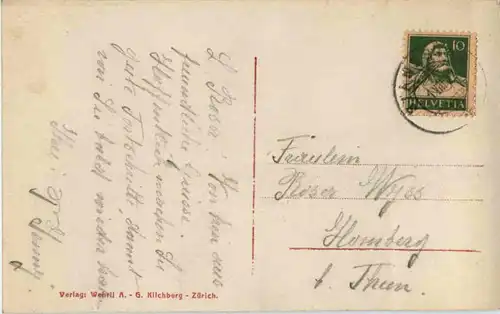 L. Roser! Von hier aus
freundliche Grüsse.
Hoffentlich machen Sie
gute Fortschritte, damit
wir Sie bald wieder
Ihre:
10
HELVETIA
Fräulein
Roser Wyss
Homberg
b. Thun.
Verlag: Wehrli A. - G. Kilchberg - Zürich.